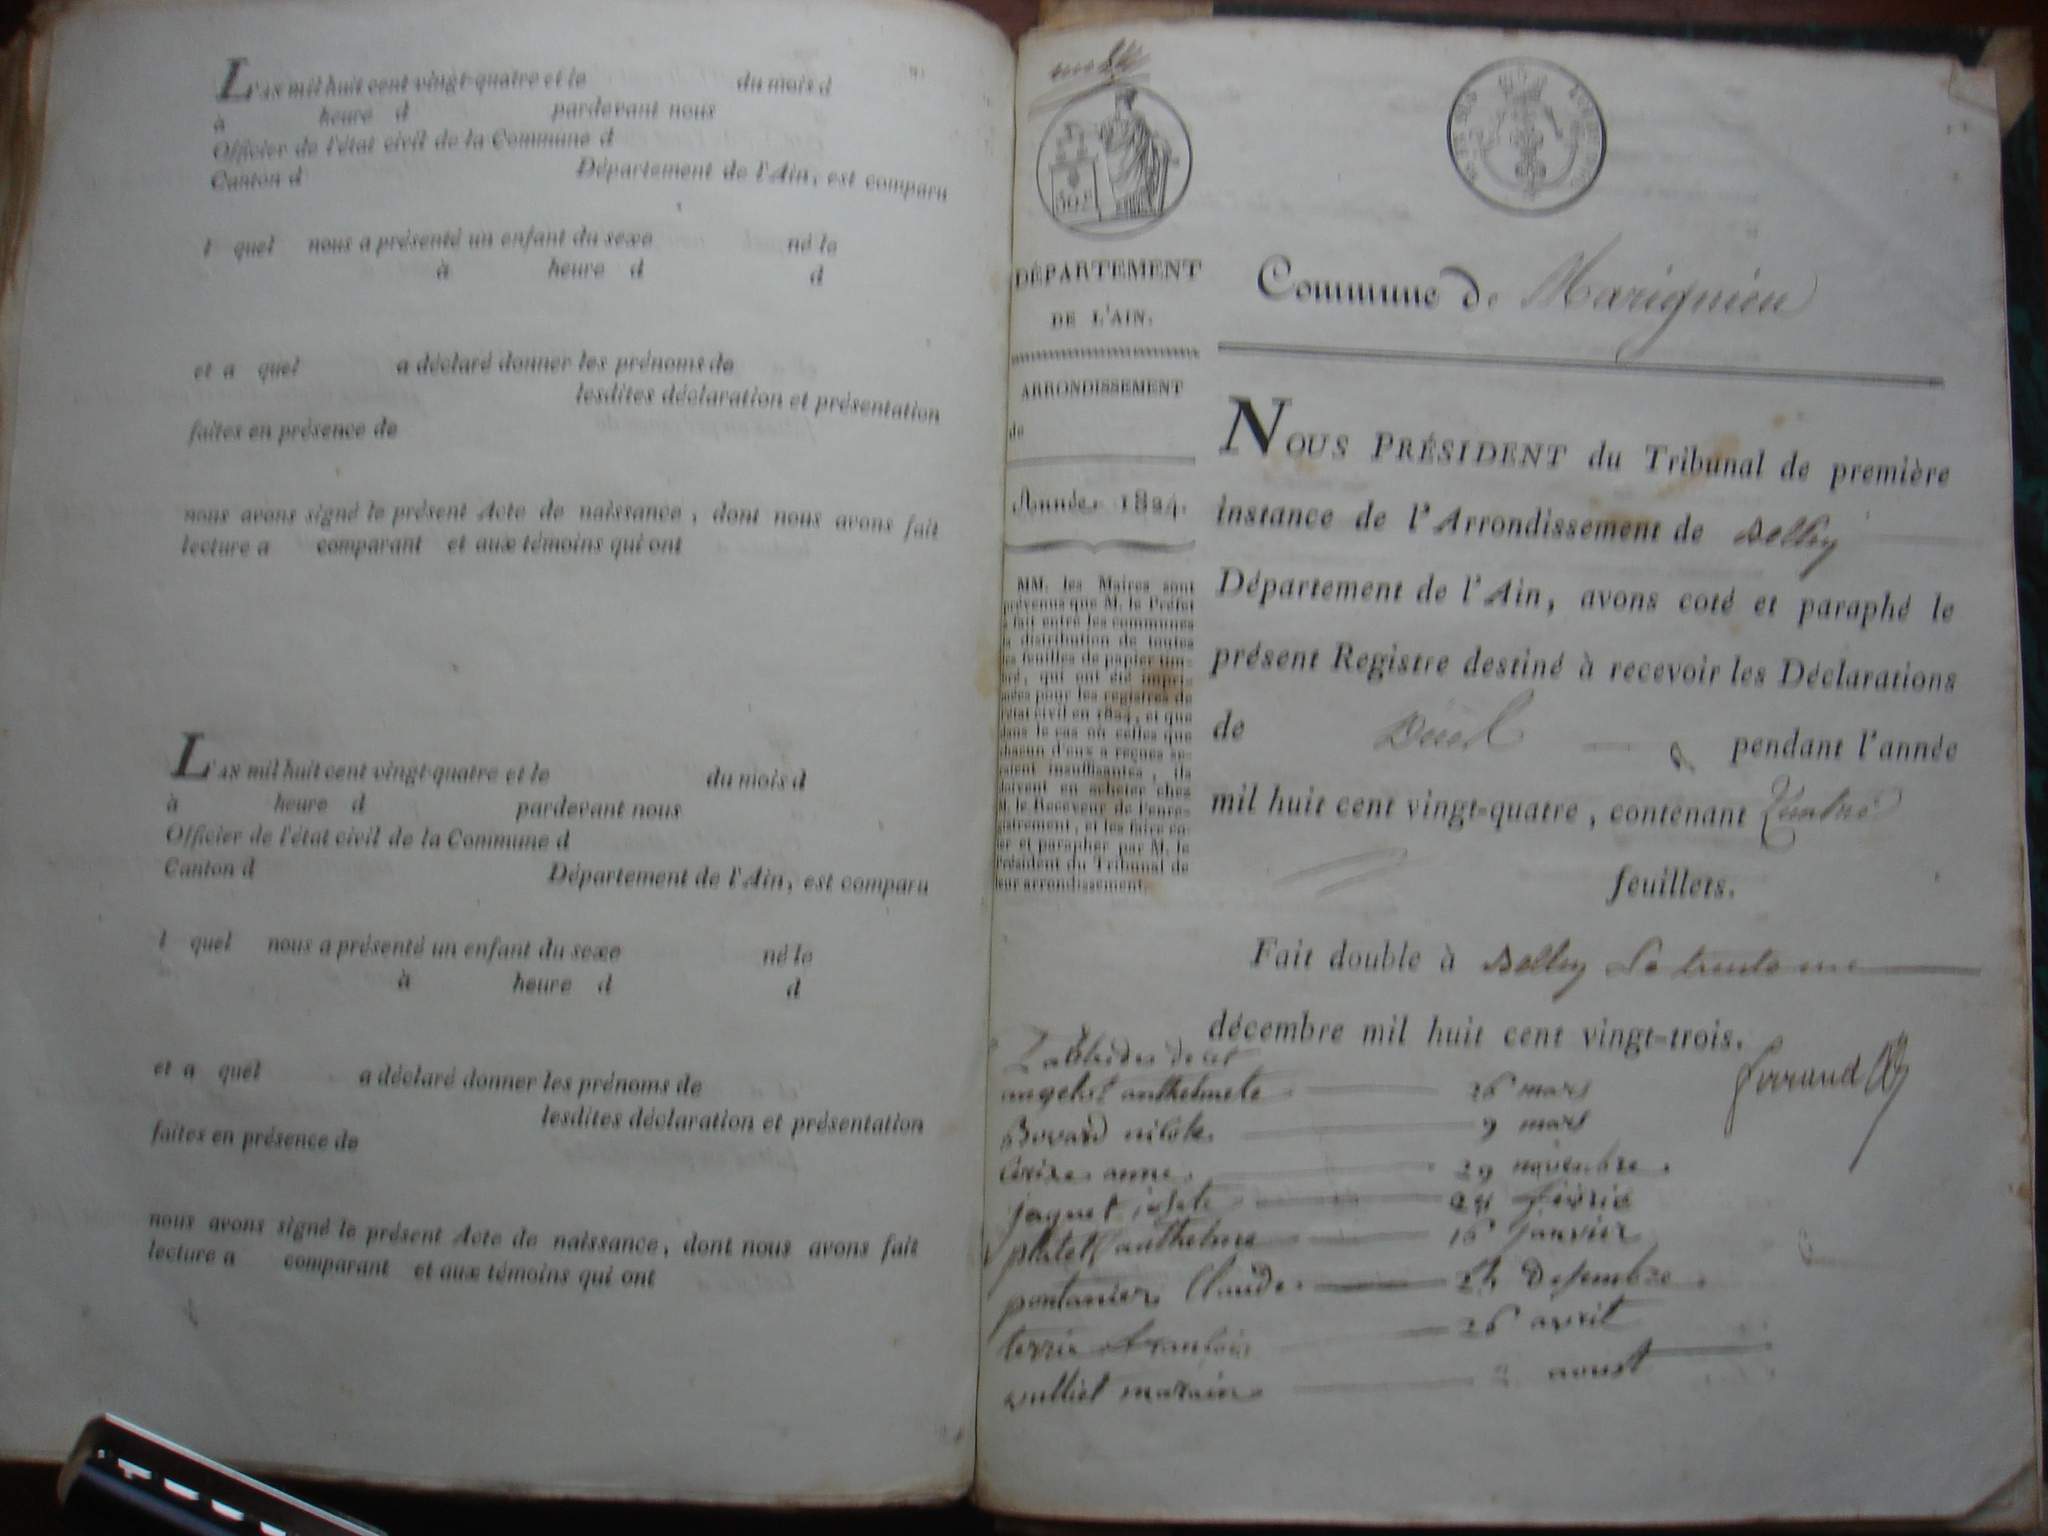 L'AN mil huit cent vingt-quatre et le du mois d
à heure d pardevant nous
Officier de l'état civil de la Commune d
Canton d Département de l'Ain, est comparu
l quel nous a présenté un enfant du sexe né le
à heure d d
et a quel a déclaré donner les prénoms de
lesdites déclaration et présentation
faites en présence de
nous avons signé le présent Acte de naissance, dont nous avons fait
lecture a comparant et aux témoins qui ont
L'AN mil huit cent vingt-quatre et le du mois d
à heure d pardevant nous
Officier de l'état civil de la Commune d
Canton d Département de l'Ain, est comparu
l quel nous a présenté un enfant du sexe né le
à heure d d
et a quel a déclaré donner les prénoms de
lesdites déclaration et présentation
faites en présence de
nous avons signé le présent Acte de naissance, dont nous avons fait
lecture a comparant et aux témoins qui ont
DÉPARTEMENT
DE L'AIN.
ARRONDISSEMENT
de
Année 1824.
MM. les Maires sont
prévenus que M. le Préfet
a fait entre les communes
la distribution de toutes
les feuilles de papier tim-
bré, qui ont été impri-
mées pour les registres de
l'état civil en 1824, et que
dans le cas où celles que
chacun d'eux a reçues se-
raient insuffisantes, ils
doivent en acheter chez
M. le Receveur de l'enre-
gistrement, et les faire co-
ter et parapher par M. le
Président du Tribunal de
leur arrondissement.
Commune de Marignieu
NOUS PRÉSIDENT du Tribunal de première
instance de l'Arrondissement de Belley
Département de l'Ain, avons coté et paraphé le
présent Registre destiné à recevoir les Déclarations
de Décès pendant l'année
mil huit cent vingt-quatre, contenant Quatre
feuillets.
Fait double à Belley Le trente un
décembre mil huit cent vingt-trois.
anthelmete 26 mars
Bovard 9 mars
anne 29 novembre.
jaquet 24
platet anthelme 16 janvier
pontanier Claude. 24 desembre.
terrie 26 avrit
vulliet 2 aoust